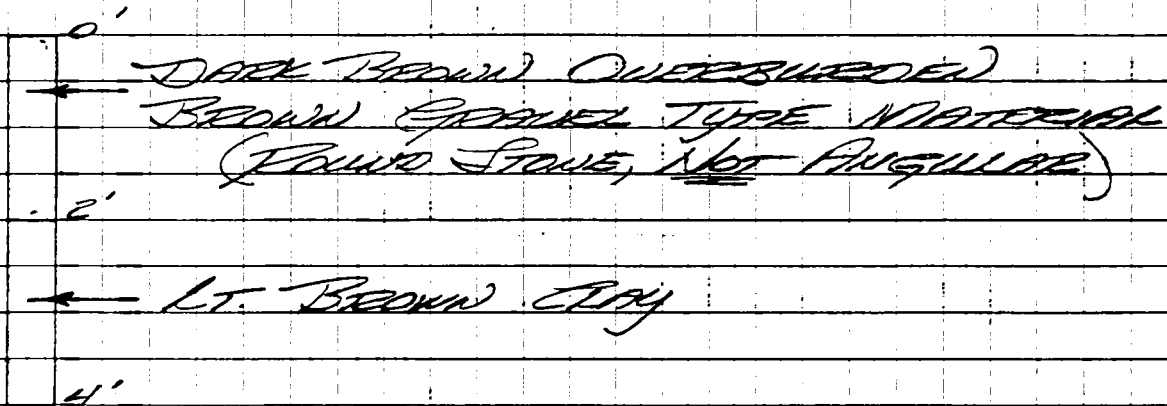 0'
DARK BROWN OVERBURDEN
BROWN GRAVEL TYPE MATERIAL
(ROUND STONE, NOT ANGULAR)
2'
LT. BROWN CLAY
4'